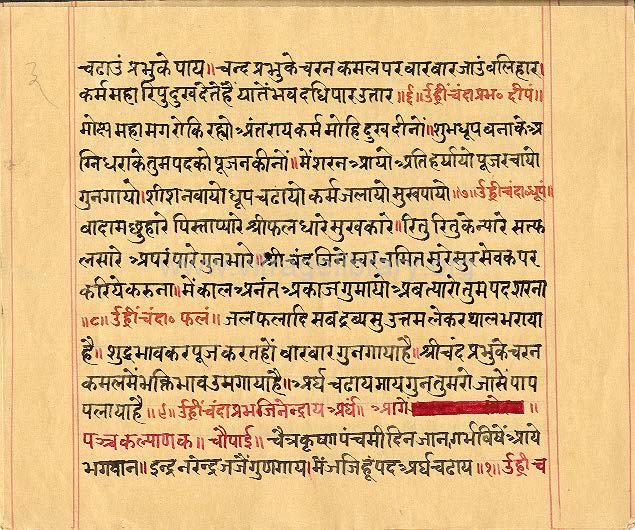 ३
चढाउं प्रभुके पाय॥ चन्द प्रभुके चरन कमल पर बार बार जाउं बलिहार।
कर्म महा रिपु दुख देतें हैं यातें भव दधि पार उतार ॥६॥ उँह्रीं चंदाप्रभ॰ दीपं॥
मोक्ष महा मग रोकि रह्यो अंतराय कर्म मोहि दुख दीनों॥ शुभ धूप बनाके अ
ग्नि धराके तुम पद को पूजन कीनों॥ में शरन आयो अति हर्यायो पूज रचायो
गुन गायो। शीश नवायो धूप चढायो कर्म जलायो सुख पायो॥७॥ उँह्रीं चंदा॰ धूपं
वादाम छुहारे पिस्ताप्यारे श्रीफल धारे सुखकारे॥ रितु रितु के न्यारे सत्फ
लसारे अपरंपारे गुन भारे॥ श्री चंद जिनेस्वर नमित सुरेसुर सेवक पर
करिये करुना॥ में काल अनंत अकाज गुमायो अब त्यारो तुम पद शरना
॥८॥ उँह्रीं चंदा॰ फलं॥ जल फलादि सब द्रव्य सु उत्तम लेकर थाल भराया
है॥ शुद्ध भाव कर पूज करत हों बार बार गुन गाया है॥ श्री चंद प्रभु के चरन
कमल में भक्ति भाव उमगाया है॥ अर्घ चढाय गाय गुन तुमरो जासें पाप
पलाया है॥९॥ उँह्रीं चंदाप्रभ जिनेन्द्राय अर्घं॥ आगें ॥
पञ्च कल्पाणक॥ चौपाई॥ चैत्र कृष्ण पंचमी दिन जान गर्भ बिषें आये
भगवान॥ इन्द्र नरेन्द्र जजैं गुण गाय। में जजि हूं पद अर्घ चढाय॥१॥ उँह्रीं च